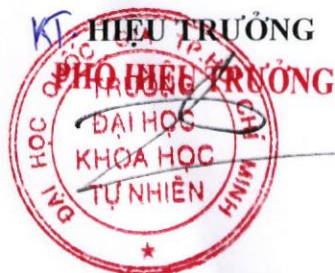 KT. HIỆU TRƯỞNG
PHÓ HIỆU TRƯỞNG
ĐẠI HỌC QUỐC GIA TP. HỒ CHÍ MINH
TRƯỜNG
ĐẠI HỌC
KHOA HỌC
TỰ NHIÊN